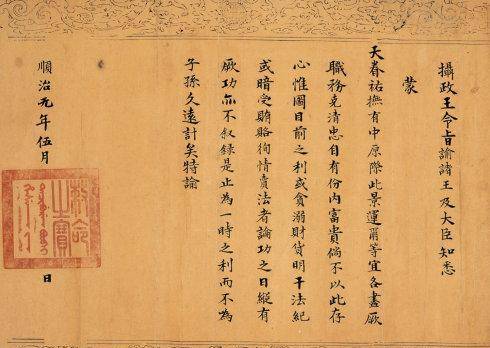 攝政王令旨諭諸王及大臣知悉
蒙
天眷祐撫有中原際此景運爾等宜各盡厥
職務克清忠自有份內富貴倘不以此存
心惟圖目前之利或貪溺財貨明干法紀
或暗受賄賂徇情賣法者論功之日縱有
厥功亦不叙錄是止為一時之利而不為
子孫久遠計矣特諭
順治元年伍月
日
制命之寶